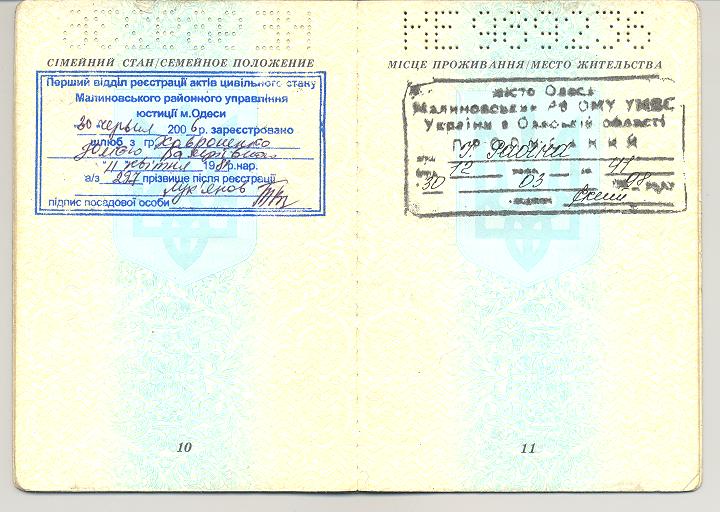 НЕ 989236
СІМЕЙНИЙ СТАН/СЕМЕЙНОЕ ПОЛОЖЕНИЕ
Перший відділ реєстрації актів цивільного стану
Малиновського районного управління
юстиції м.Одеси
30 червня 2006р. зареєстровано
шлюб з гр.
11 квітня 198 р.нар.
а/з 297 прізвище після реєстрації
Лук'янов
підпис посадової особи
10
МІСЦЕ ПРОЖИВАННЯ/МЕСТО ЖИТЕЛЬСТВА
місто Одеса
Малиновським РВ ОМУ УМВС
України в Одеській області
12 41
30 03 08 року
11